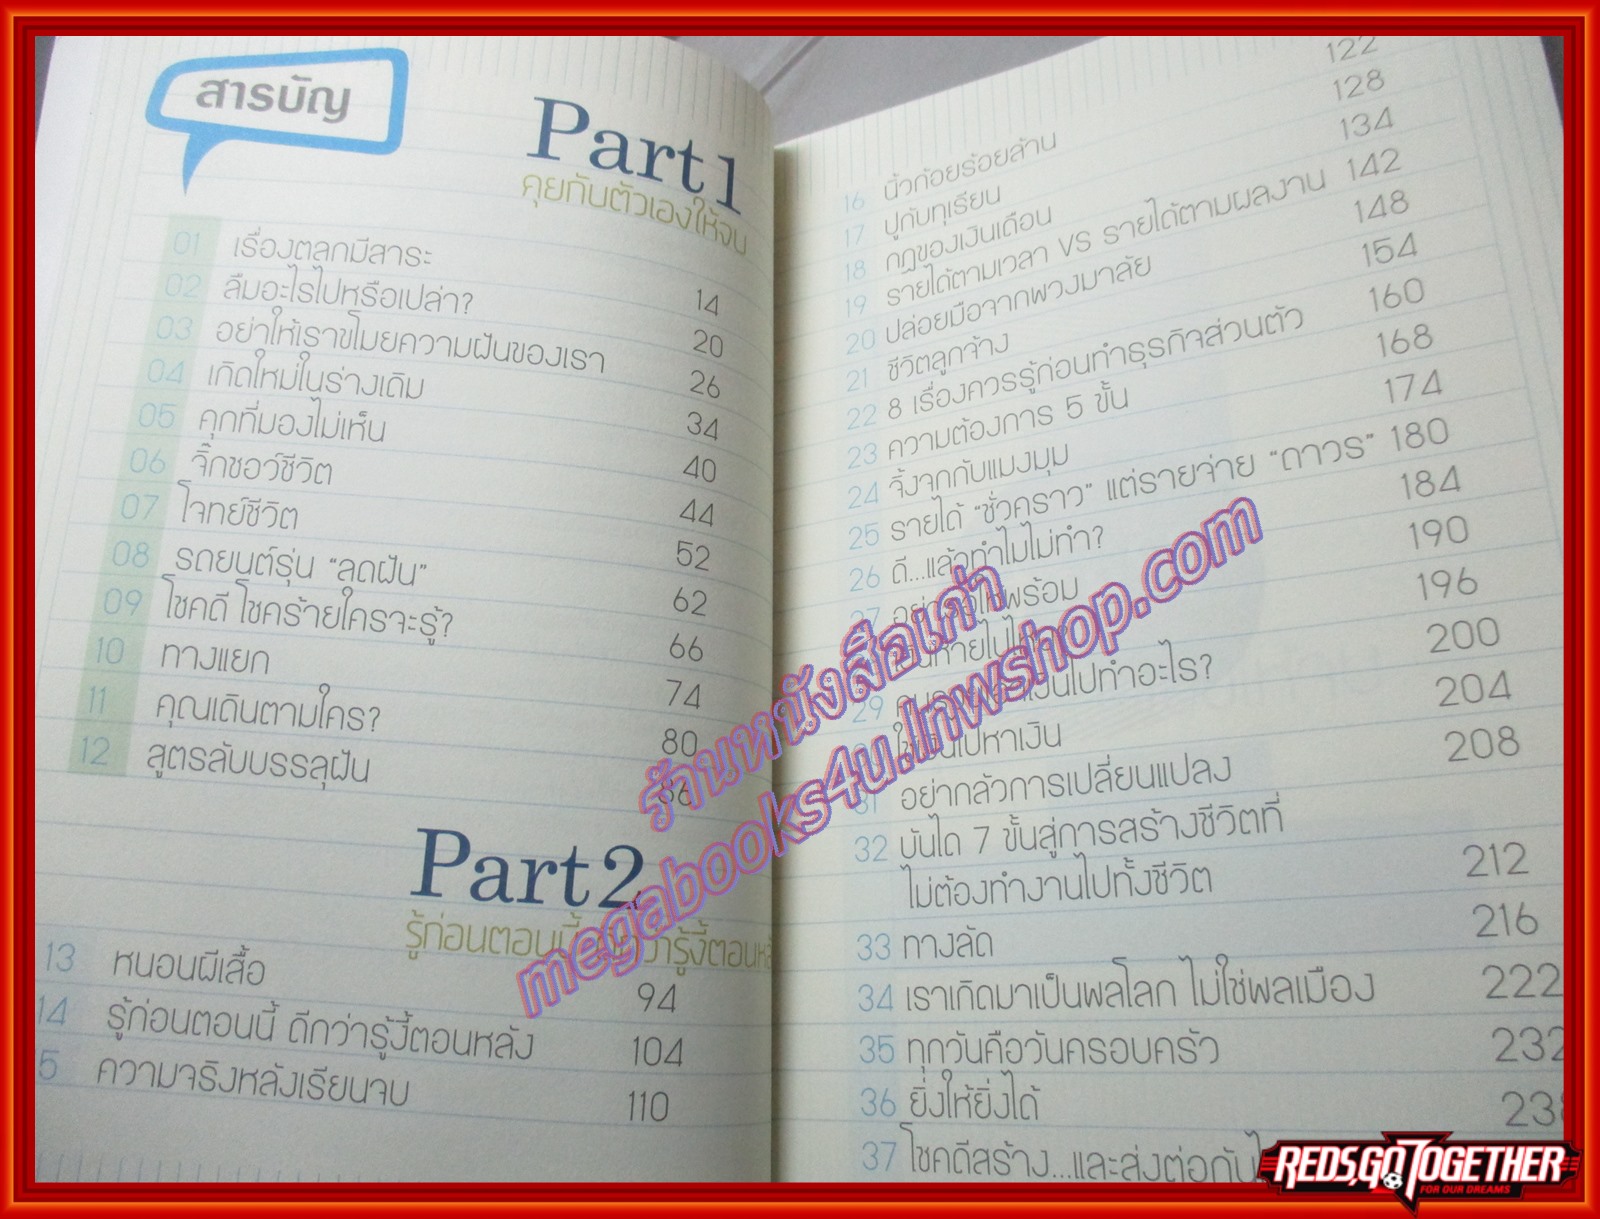 สารบัญ
Part 1
คุยกับตัวเองให้จบ
01 เรื่องตลกมีสาระ 14
02 ลืมอะไรไปหรือเปล่า? 20
03 อย่าให้เราขโมยความฝันของเรา 26
04 เกิดใหม่ในร่างเดิม 34
05 คุกที่มองไม่เห็น 40
06 จิ๊กซอว์ชีวิต 44
07 โจทย์ชีวิต 52
08 รถยนต์รุ่น "ลุดฝัน" 62
09 โชคดี โชคร้ายใครจะรู้? 66
10 ทางแยก 74
11 คุณเดินตามใคร? 80
12 สูตรลับบรรลุฝัน 86
Part 2
รู้ก่อนตอนนี้
13 หนอนผีเสื้อ 94
14 รู้ก่อนตอนนี้ ดีกว่ารู้งี้ตอนหลัง 104
5 ความจริงหลังเรียนจบ 110
16 นิ้วก้อยร้อยล้าน 122
17 ปูกับทุเรียน 128
18 กฎของเงินเดือน 134
19 รายได้ตามเวลา VS รายได้ตามผลงาน 142
20 ปล่อยมือจากพวงมาลัย 148
21 ชีวิตลูกจ้าง 154
22 8 เรื่องควรรู้ก่อนทำธุรกิจส่วนตัว 160
23 ความต้องการ 5 ขั้น 168
24 จิ้งจกกับแมงมุม 174
25 รายได้ "ชั่วคราว" แต่รายจ่าย "ถาวร" 180
26 ดี...แล้วทำไมไม่ทำ? 184
27 190
196
29 เงินไปทำอะไร? 200
ไปหาเงิน 204
31 อย่ากลัวการเปลี่ยนแปลง 208
32 บันได 7 ขั้นสู่การสร้างชีวิตที่
ไม่ต้องทำงานไปทั้งชีวิต 212
33 ทางลัด 216
34 เราเกิดมาเป็นพลโลก ไม่ใช่พลเมือง 222
35 ทุกวันคือวันครอบครัว 232
36 ยิ่งให้ยิ่งได้
37 โชคดีสร้าง...และส่งต่อกัน
ร้านหนังสือเก่า
megabooks4u.lnwshop.com
REDS,GO TOGETHER
FOR OUR DREAMS